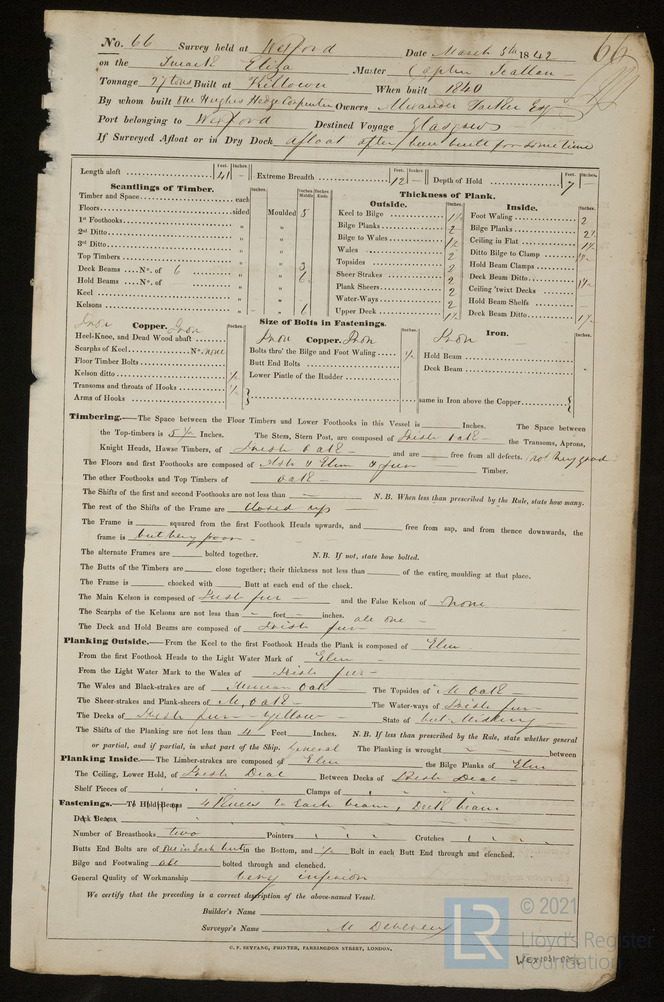 No. 66 Survey held at Wexford Date March 5th 1842 66
on the Smack Eliza Master
Tonnage 27 tons Built at When built 1840
By whom built Hughes Hedge Carpenter Owners Esqr
Port belonging to Wexford Destined Voyage Glasgow
If Surveyed Afloat or in Dry Dock afloat after been built for some time
Length aloft Feet. Inches. 41 – Extreme Breadth Feet. Inches. 12 – Depth of Hold Feet. Inches. 7 –
Scantlings of Timber. Inches. Inches Middle Inches Ends Thickness of Plank.
Outside. Inches. Inside. Inches.
Timber and Space each
Floors sided Moulded 5
1st Foothooks „ „
2nd Ditto „ „
3rd Ditto „ „
Top Timbers „ „ 3
Deck Beams .... No. of 6 „ „ 6
Hold Beams .... No. of „ „
Keel „ „
Kelsons „ „ 6
Keel to Bilge 1½
Bilge Planks 2
Bilge to Wales 1½
Wales 2
Topsides 2
Sheer Strakes 2
Plank Sheers 2
Water-Ways 2
Upper Deck 1½
Foot Waling 2
Bilge Planks 2½
Ceiling in Flat 1½
Ditto Bilge to Clamp 1½
Hold Beam Clamps
Deck Beam Ditto 1½
Ceiling 'twixt Decks
Hold Beam Shelfs
Deck Beam Ditto 1½
Size of Bolts in Fastenings.
Iron Copper. Iron Inches.
Heel-Knee, and Dead Wood abaft
Scarphs of Keel No. none
Floor Timber Bolts
Kelson ditto
Transoms and throats of Hooks
Arms of Hooks
Iron Copper. Iron Inches.
Bolts thro' the Bilge and Foot Waling
Butt End Bolts
Lower Pintle of the Rudder
Iron Iron. Inches.
Hold Beam
Deck Beam
same in Iron above the Copper
Timbering.—The Space between the Floor Timbers and Lower Foothooks in this Vessel is Inches. The Space between
the Top-timbers is 5½ Inches. The Stem, Stern Post, are composed of Irish Oak the Transoms, Aprons,
Knight Heads, Hawse Timbers, of Irish Oak and are free from all defects. not very good
The Floors and first Foothooks are composed of Ash & Elm & fur Timber.
The other Foothooks and Top Timbers of Oak
The Shifts of the first and second Foothooks are not less than – N. B. When less than prescribed by the Rule, state how many.
The rest of the Shifts of the Frame are closed up
The Frame is squared from the first Foothook Heads upwards, and free from sap, and from thence downwards, the
frame is but very poor
The alternate Frames are bolted together. N. B. If not, state how bolted.
The Butts of the Timbers are close together; their thickness not less than of the entire moulding at that place.
The Frame is chocked with Butt at each end of the chock.
The Main Kelson is composed of Irish fur and the False Kelson of None
The Scarphs of the Kelsons are not less than – feet – inches. all one
The Deck and Hold Beams are composed of Irish fur
Planking Outside.—From the Keel to the first Foothook Heads the Plank is composed of Elm
From the first Foothook Heads to the Light Water Mark of Elm
From the Light Water Mark to the Wales of Irish fur
The Wales and Black-strakes are of Oak The Topsides of M Oak
The Sheer-strakes and Plank-sheers of M. Oak The Water-ways of Irish fur
The Decks of Irish fur yellow State of but Midling
The Shifts of the Planking are not less than 4 Feet Inches. N. B. If less than prescribed by the Rule, state whether general
or partial, and if partial, in what part of the Ship. General The Planking is wrought between
Planking Inside.—The Limber-strakes are composed of Elm the Bilge Planks of Elm
The Ceiling, Lower Hold, of Irish Deal Between Decks of Irish Deal
Shelf Pieces of Clamps of
Fastenings.—To Hold Beams 4 Knees to each beam, Deck beam
Deck Beams
Number of Breasthooks two Pointers Crutches
Butts End Bolts are of in Each butt in the Bottom, and Bolt in each Butt End through and clenched.
Bilge and Footwaling all bolted through and clenched.
General Quality of Workmanship very inferior
We certify that the preceding is a correct description of the above-named Vessel.
Builder's Name
Surveyor's Name M Devereux
C. F. SEYFANG, PRINTER, FARRINGDON STREET, LONDON.
LR © 2021
Lloyd's Register
Foundation